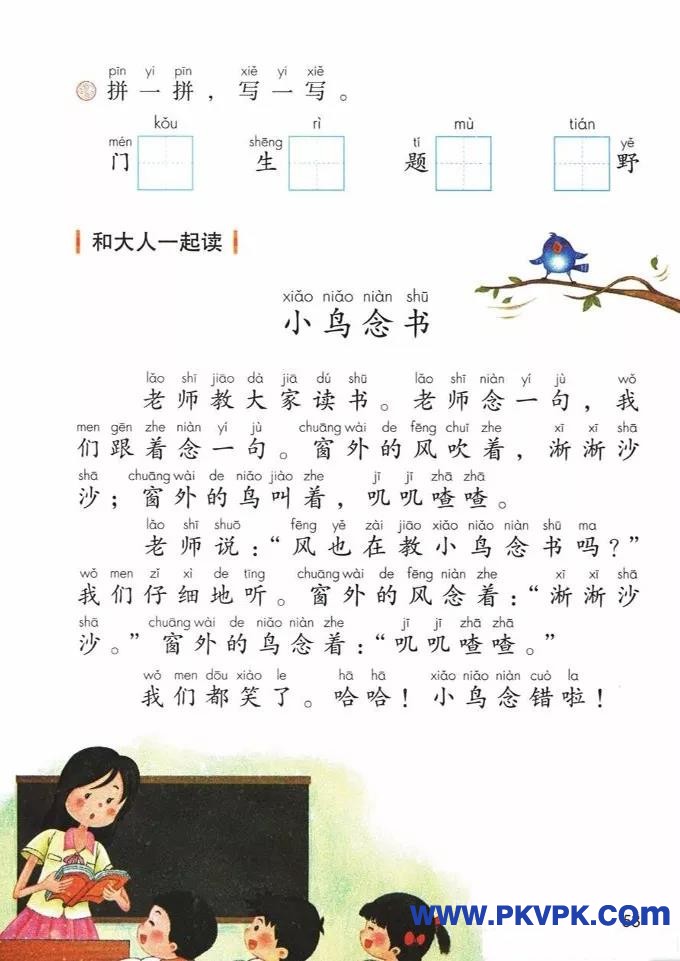 pīn yi pīn xiě yi xiě
拼一拼，写一写。
kǒu rì mù tián
mén shēng tí yě
门 生 题 野
和大人一起读
xiǎo niǎo niàn shū
小鸟念书
lǎo shī jiāo dà jiā dú shū lǎo shī niàn yí jù wǒ
老师教大家读书。老师念一句，我
men gēn zhe niàn yí jù chuāng wài de fēng chuī zhe xī xī shā
们跟着念一句。窗外的风吹着，淅淅沙
shā chuāng wài de niǎo jiào zhe jī jī zhā zhā
沙；窗外的鸟叫着，叽叽喳喳。
lǎo shī shuō fēng yě zài jiāo xiǎo niǎo niàn shū ma
老师说：“风也在教小鸟念书吗？”
wǒ men zǐ xì de tīng chuāng wài de fēng niàn zhe xī xī shā
我们仔细地听。窗外的风念着：“淅淅沙
shā chuāng wài de niǎo niàn zhe jī jī zhā zhā
沙。”窗外的鸟念着：“叽叽喳喳。”
wǒ men dōu xiào le hā hā xiǎo niǎo niàn cuò la
我们都笑了。哈哈！小鸟念错啦！
www.PKVPK.com